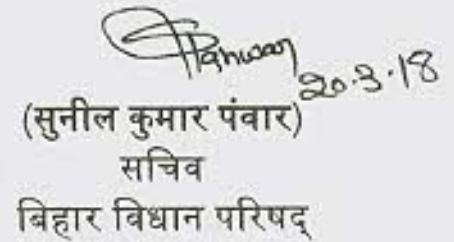 Panwar
20.3.18
(सुनील कुमार पंवार)
सचिव
बिहार विधान परिषद्